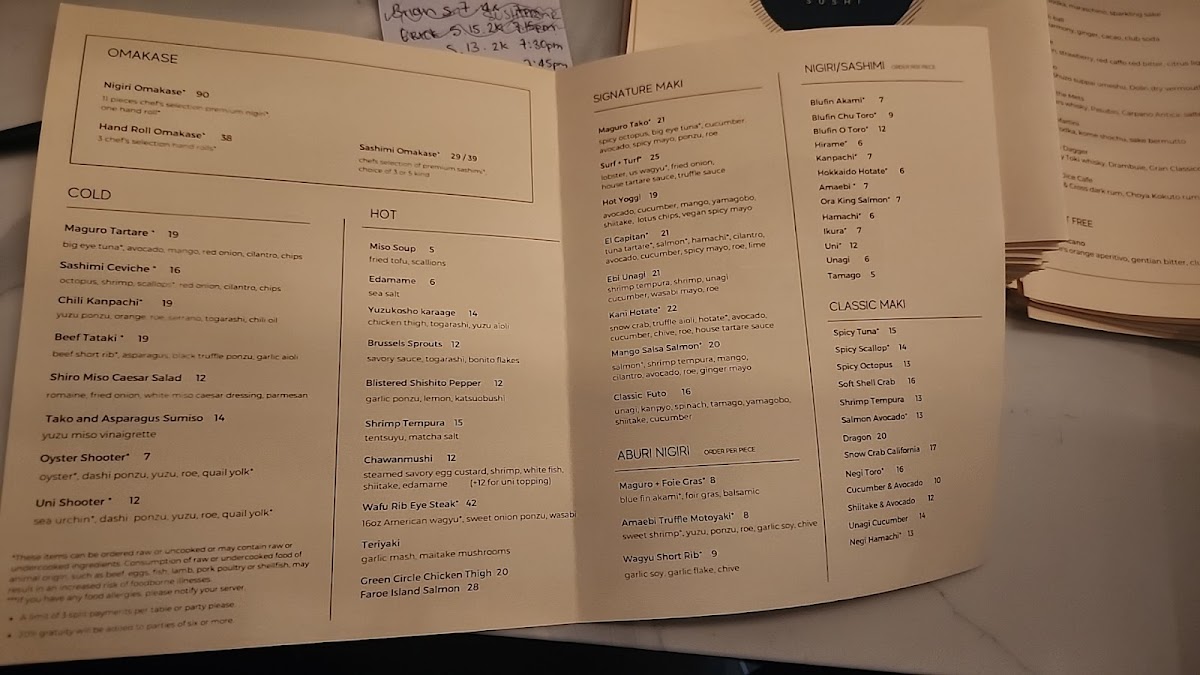 OMAKASE
Nigiri Omakase* 90
11 pieces chef's selection premium nigiri*
one hand roll*
Hand Roll Omakase* 38
3 chef's selection hand rolls*
Sashimi Omakase* 29/39
chefs selection of premium sashimi*,
choice of 3 or 5 kind
COLD
Maguro Tartare * 19
big eye tuna*, avocado, mango, red onion, cilantro, chips
Sashimi Ceviche * 16
octopus, shrimp, scallops*, red onion, cilantro, chips
Chili Kanpachi* 19
yuzu ponzu, orange, roe, serrano, togarashi, chili oil
Beef Tataki * 19
beef short rib*, asparagus, black truffle ponzu, garlic aioli
Shiro Miso Caesar Salad 12
romaine, fried onion, white miso caesar dressing, parmesan
Tako and Asparagus Sumiso 14
yuzu miso vinaigrette
Oyster Shooter* 7
oyster*, dashi ponzu, yuzu, roe, quail yolk*
Uni Shooter * 12
sea urchin*, dashi ponzu, yuzu, roe, quail yolk*
*These items can be ordered raw or uncooked or may contain raw or
undercooked ingredients. Consumption of raw or undercooked food of
animal origin, such as beef, eggs, fish, lamb, pork poultry or shellfish, may
result in an increased risk of foodborne illnesses.
***If you have any food allergies, please notify your server.
• A limit of 3 split payments per table or party please.
• 20% gratuity will be added to parties of six or more
HOT
Miso Soup 5
fried tofu, scallions
Edamame 6
sea salt
Yuzukosho karaage 14
chicken thigh, togarashi, yuzu aioli
Brussels Sprouts 12
savory sauce, togarashi, bonito flakes
Blistered Shishito Pepper 12
garlic ponzu, lemon, katsuobushi
Shrimp Tempura 15
tentsuyu, matcha salt
Chawanmushi 12
steamed savory egg custard, shrimp, white fish,
shiitake, edamame (+12 for uni topping)
Wafu Rib Eye Steak* 42
16oz American wagyu*, sweet onion ponzu, wasabi
Teriyaki
garlic mash, maitake mushrooms
Green Circle Chicken Thigh 20
Faroe Island Salmon 28
SIGNATURE MAKI
Maguro Tako* 21
spicy octopus, big eye tuna*, cucumber,
avocado, spicy mayo, ponzu, roe
Surf + Turf* 25
lobster, us wagyu*, fried onion,
house tartare sauce, truffle sauce
Hot Yoggi 19
avocado, cucumber, mango, yamagobo,
shiitake, lotus chips, vegan spicy mayo
El Capitan* 21
tuna tartare*, salmon*, hamachi*, cilantro,
avocado, cucumber, spicy mayo, roe, lime
Ebi Unagi 21
shrimp tempura, shrimp, unagi
cucumber, wasabi mayo, roe
Kani Hotate* 22
snow crab, truffle aioli, hotate*, avocado,
cucumber, chive, roe, house tartare sauce
Mango Salsa Salmon* 20
salmon*, shrimp tempura, mango,
cilantro, avocado, roe, ginger mayo
Classic Futo 16
unagi, kanpyo, spinach, tamago, yamagobo,
shiitake, cucumber
ABURI NIGIRI ORDER PER PIECE
Maguro + Foie Gras* 8
blue fin akami*, foir gras, balsamic
Amaebi Truffle Motoyaki* 8
sweet shrimp*, yuzu, ponzu, roe, garlic soy, chive
Wagyu Short Rib* 9
garlic soy, garlic flake, chive
NIGIRI/SASHIMI ORDER PER PIECE
Blufin Akami* 7
Blufin Chu Toro* 9
Blufin O Toro* 12
Hirame* 6
Kanpachi* 7
Hokkaido Hotate* 6
Amaebi * 7
Ora King Salmon* 7
Hamachi* 6
Ikura* 7
Uni* 12
Unagi 6
Tamago 5
CLASSIC MAKI
Spicy Tuna* 15
Spicy Scallop* 14
Spicy Octopus 13
Soft Shell Crab 16
Shrimp Tempura 13
Salmon Avocado* 13
Dragon 20
Snow Crab California 17
Negi Toro* 16
Cucumber & Avocado 10
Shiitake & Avocado 12
Unagi Cucumber 14
Negi Hamachi* 13
5.15.2k 7:15pm
5.13.2k 7:30pm
7:45pm
SUSHI
maraschino, sparkling sake
ginger, cacao, club soda
strawberry, red caffo red bitter, citrus
Dolin dry vermouth
whisky, Carpano Antica
sake bermutto
Dagger
Toki whisky, Drambuie, Gran Classico
Cafe
& Cross dark rum, Choya Kokuto rum
FREE
orange aperitivo, gentian bitter,